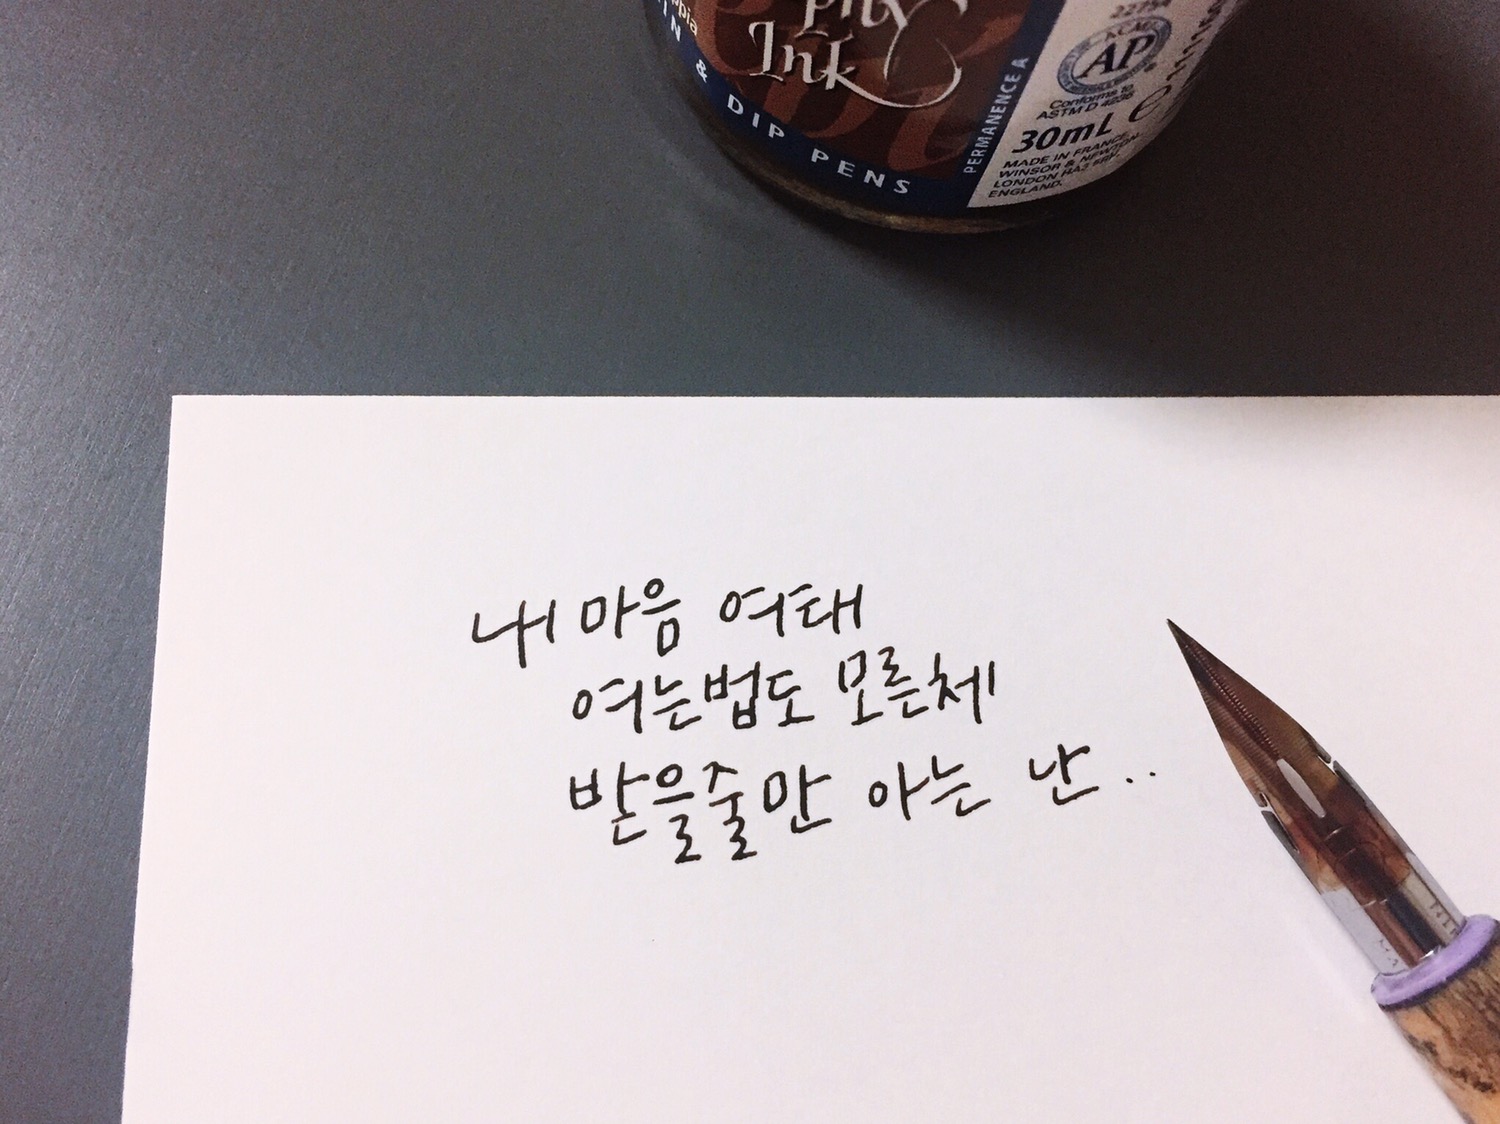 Ink
& DIP PENS
PERMANENCE A
AP
Conforms to
ASTM D 4236
30mL e
MADE IN FRANCE
WINSOR & NEWTON
LONDON HA3 5RH,
ENGLAND.
내 마음 여태
여는법도 모른체
받을줄만 아는 난..